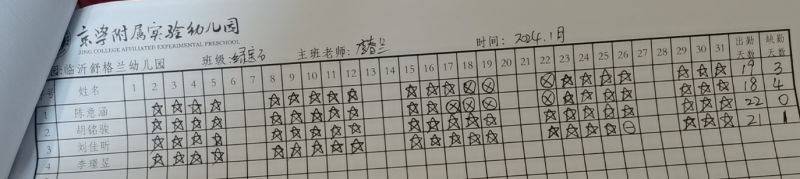 京学附属实验幼儿园
JING COLLEGE AFFILIATED EXPERIMENTAL PRESCHOOL
园:临沂舒格兰幼儿园 班级:绿宝石 主班老师: 时间: 2024.1月
号 姓名 1 2 3 4 5 6 7 8 9 10 11 12 13 14 15 16 17 18 19 20 21 22 23 24 25 26 27 28 29 30 31 出勤天数 缺勤天数
1 陈意涵 ☆ ☆ ☆ ☆ ☆ ☆ ☆ ☆ ☆ ☆ ☆ ☆ ⊗ ⊗ ⊗ ☆ ☆ ☆ ☆ ☆ ☆ ☆ 19 3
2 胡铭骏 ☆ ☆ ☆ ☆ ☆ ☆ ☆ ☆ ☆ ☆ ☆ ⊗ ⊗ ⊗ ⊗ ☆ ☆ ☆ ☆ ☆ ☆ ☆ 18 4
3 刘佳昕 ☆ ☆ ☆ ☆ ☆ ☆ ☆ ☆ ☆ ☆ ☆ ☆ ☆ ☆ ☆ ☆ ☆ ☆ ☆ ☆ ☆ ☆ 22 0
4 李璟昱 ☆ ☆ ☆ ☆ ☆ ☆ ☆ ☆ ☆ ☆ ☆ ☆ ☆ ☆ ☆ ☆ ☆ ☆ ⊖ ☆ ☆ ☆ 21 1